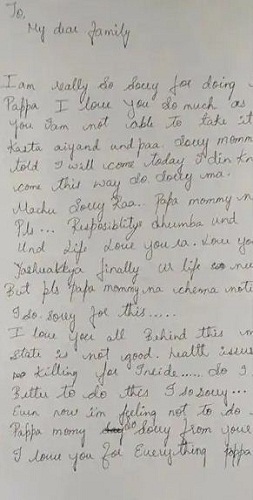 To,
My dear Family
I am really so sorry for doing
Pappa I love you so much as
you I am not able to take it
Kasta aiyand undpaa. Sorry momm
told I will come today I din kn
come this way so sorry ma.
Machu Sorry Laa.. Papa mommy n
Pls ... Resposiblitye dhumba und
Und life love you ra. Love yo
Yashuakkya finally ur life nu
But pls Papa mommy na chenna noti
I do. Sorry for this.....
I love you all Behind this m
state is not good. health issues
killing for Inside..... So I
Better to do this I so sorry...
Even now im feeling not to do
Pappa momy so sorry from your
I love you for Everything pappa